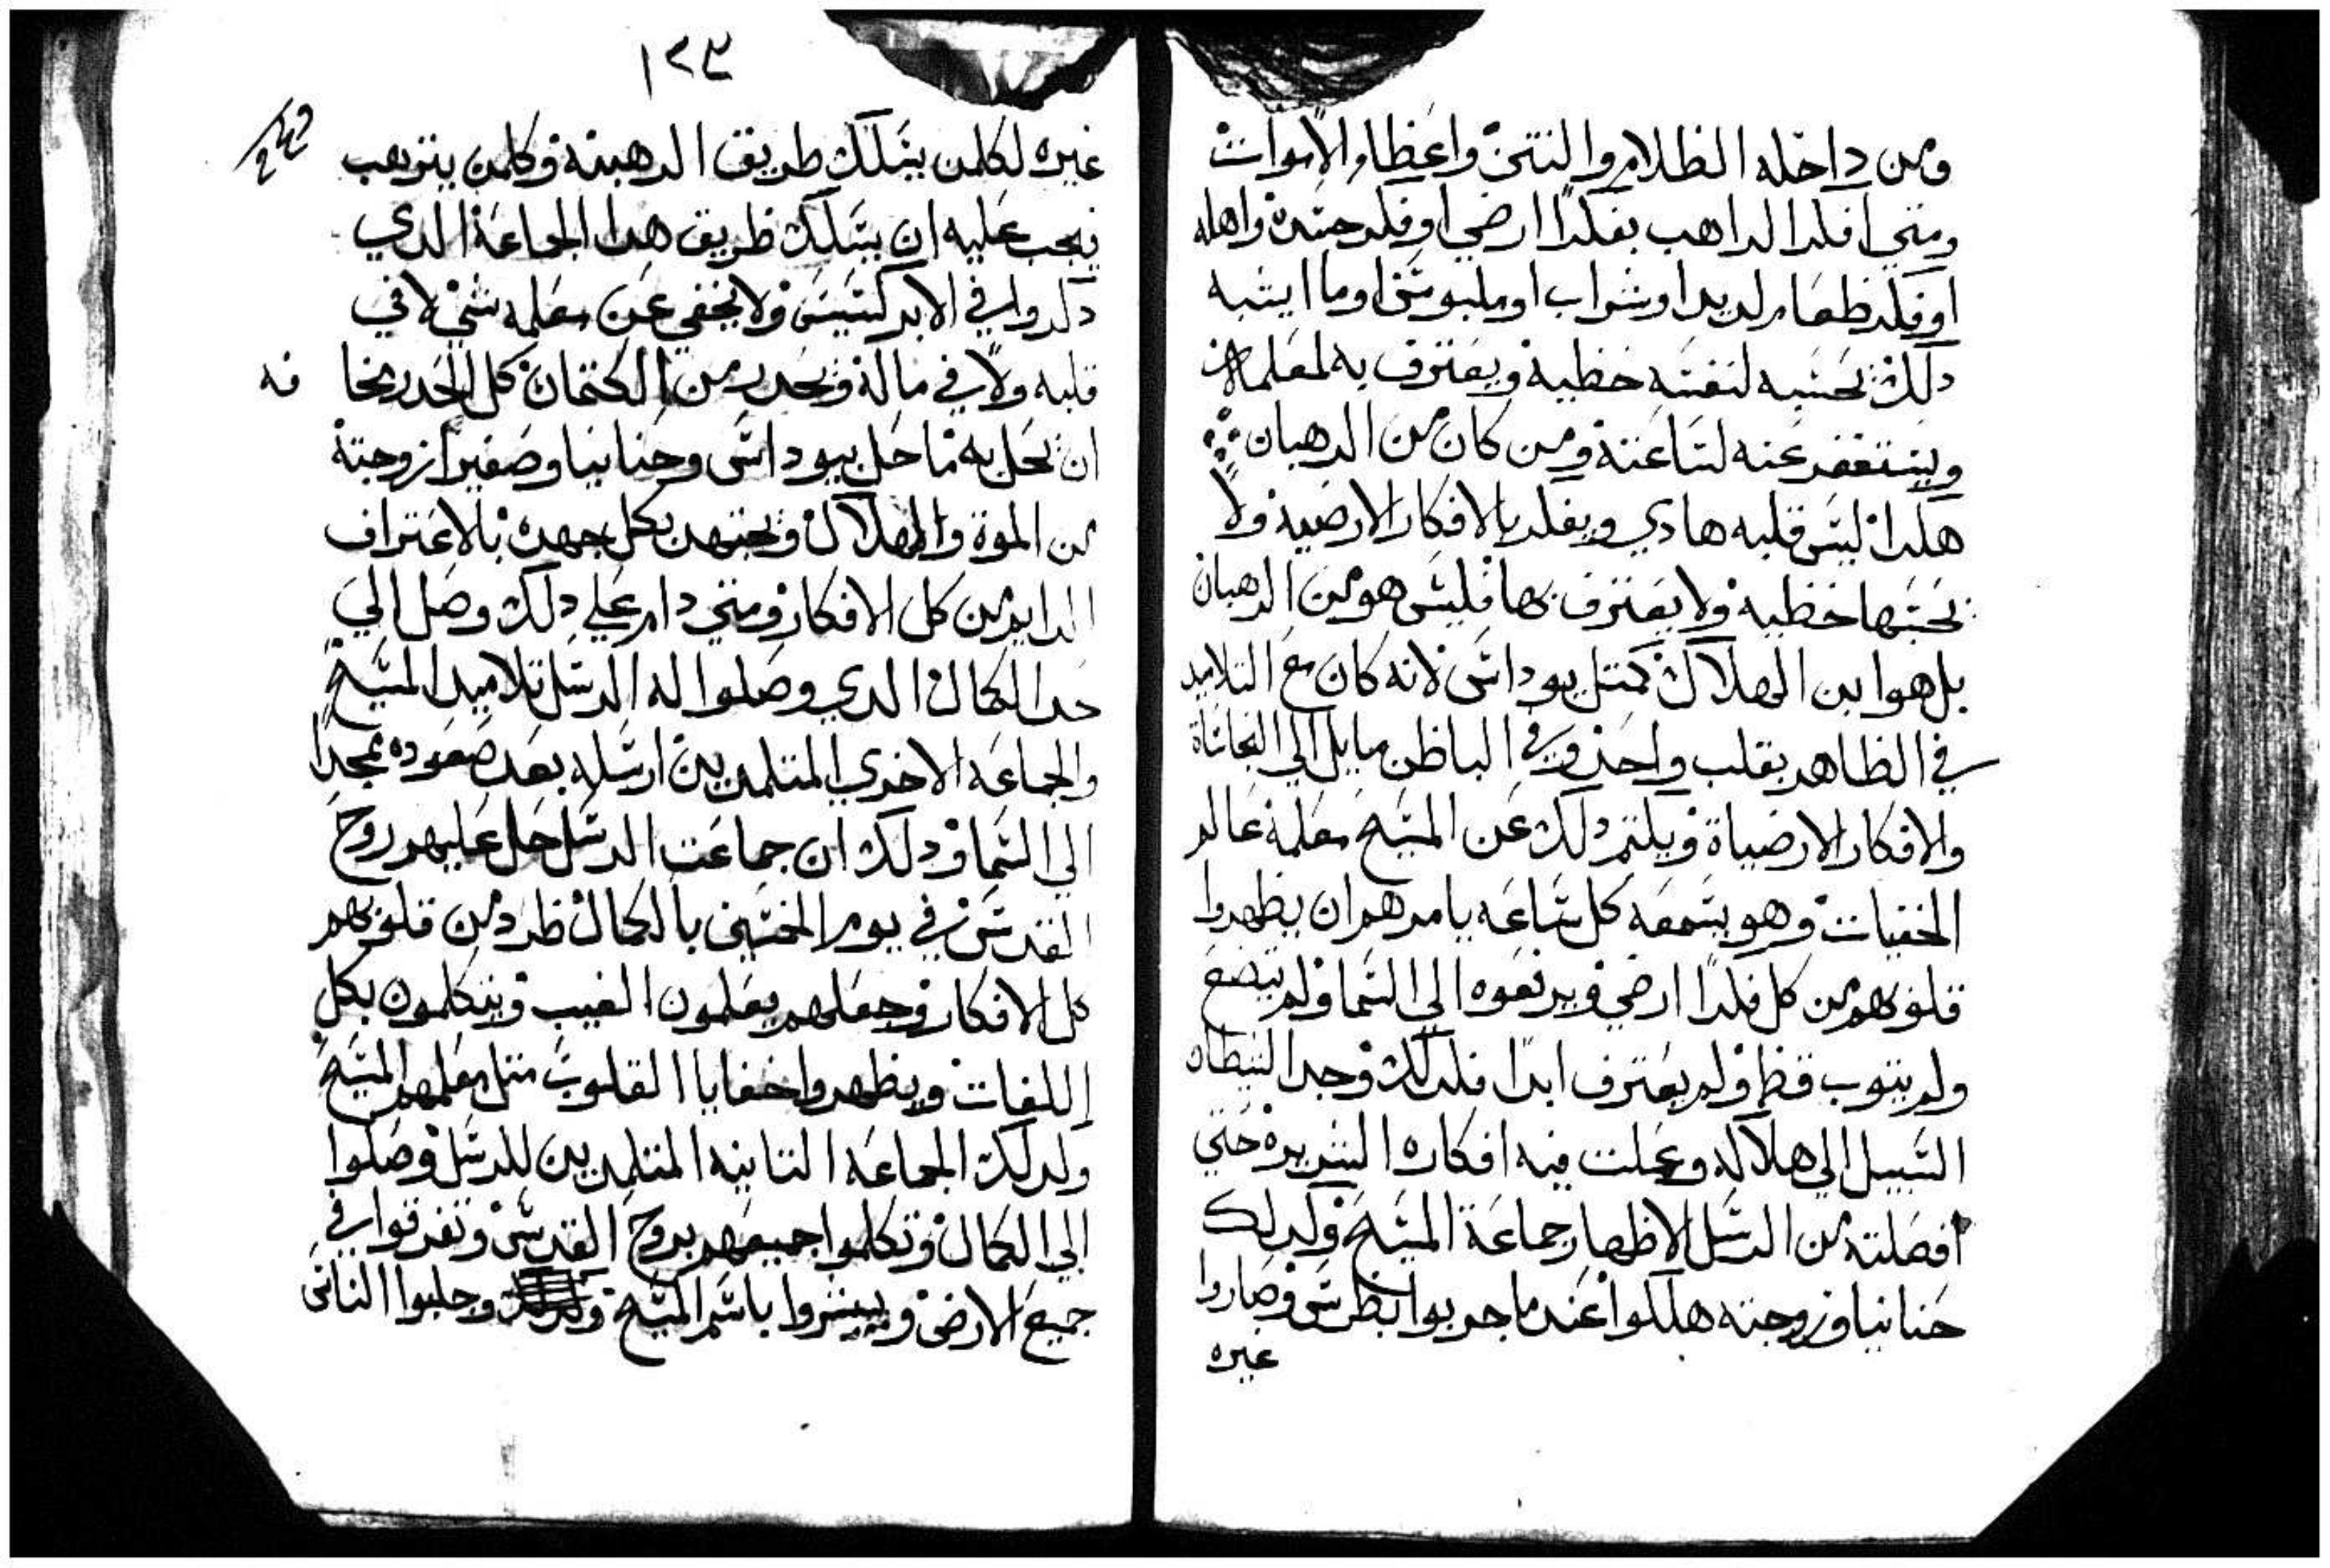 ومن داخله الظلام والنتن واعظام الاموات
ومتي افكر الراهب بفكرًا ارضي او فكر جسده واهله
او فكر طعام لديد او شراب او ملبوس او ما ايشبه
دلك يحسبه لنفسه خطية ويعترف به لمعلمه
ويستغفر عنه لساعته ومن كان من الرهبان
هكدا ليس قلبه هادي ويفكر بالافكار الارضيه ولا
يحسبها خطيه ولا يعترف بها فليس هو من الرهبان
بل هو ابن الهلاك كمتل يوداس لانه كان مع التلاميد
في الظاهر بقلب واحد وفي الباطن مايل الي النجاساة
والافكار الارضياة ويكتم دلك عن المسيح معلمه عالم
الخفيات وهو يسمعه كل ساعه يامرهم ان يطهروا
قلوبهم من كل فكرًا ارضي ويرفعوه الي السما ولم يتضع
ولم يتوب قط ولم يعترف ابدا فلدلك وجد الشيطان
السبيل الي هلاكه وعملت فيه افكاره الشريره حتي
افصلته من الرسل الاطهار جماعة المسيح وكدلك
حنانيا وزوجته هلكوا عندما جربوا بطرس وصاروا
عبره
١٢٣
عبره لكلمن يسلك طريق الرهبنه وكلمن يترهب
يجب عليه ان يسلك طريق هدا الجماعة الدي
دكروا في الابركسيس ولا يخفي عن معلمه شي لا في
قلبه ولا في ماله ويحدر من الكتمان كل الحدر مخا فه
ان يحل به ما حل بيوداس وحنانيا وصفيرا زوجتة
من الموة والهلاك ويجتهد بكل جهده بالاعتراف
الدايم من كل الافكار ومتي دام علي دلك وصل الي
حد الكمال الدي وصلوا له الرسل تلاميد المسيح
والجماعه الاخري المتلمدين ارسله بعد صعوده بمجدًا
الي السما ودلك ان جماعت الرسل حل عليهم روح
القدس في يوم الخمسين بالكمال طرد من قلوبهم
كل الافكار وجعلهم يعلمون الغيب ويتكلمون بكل
اللغات ويظهروا خفايا القلوب متل معلمهم المسيح
وكدلك الجماعه التانيه المتلمدين للرسل وصلوا
الي الكمال وتكلموا جميعهم بروح القدس وتفرقوا في
جميع الارض ويبشروا باسم المسيح وجلبوا الناس